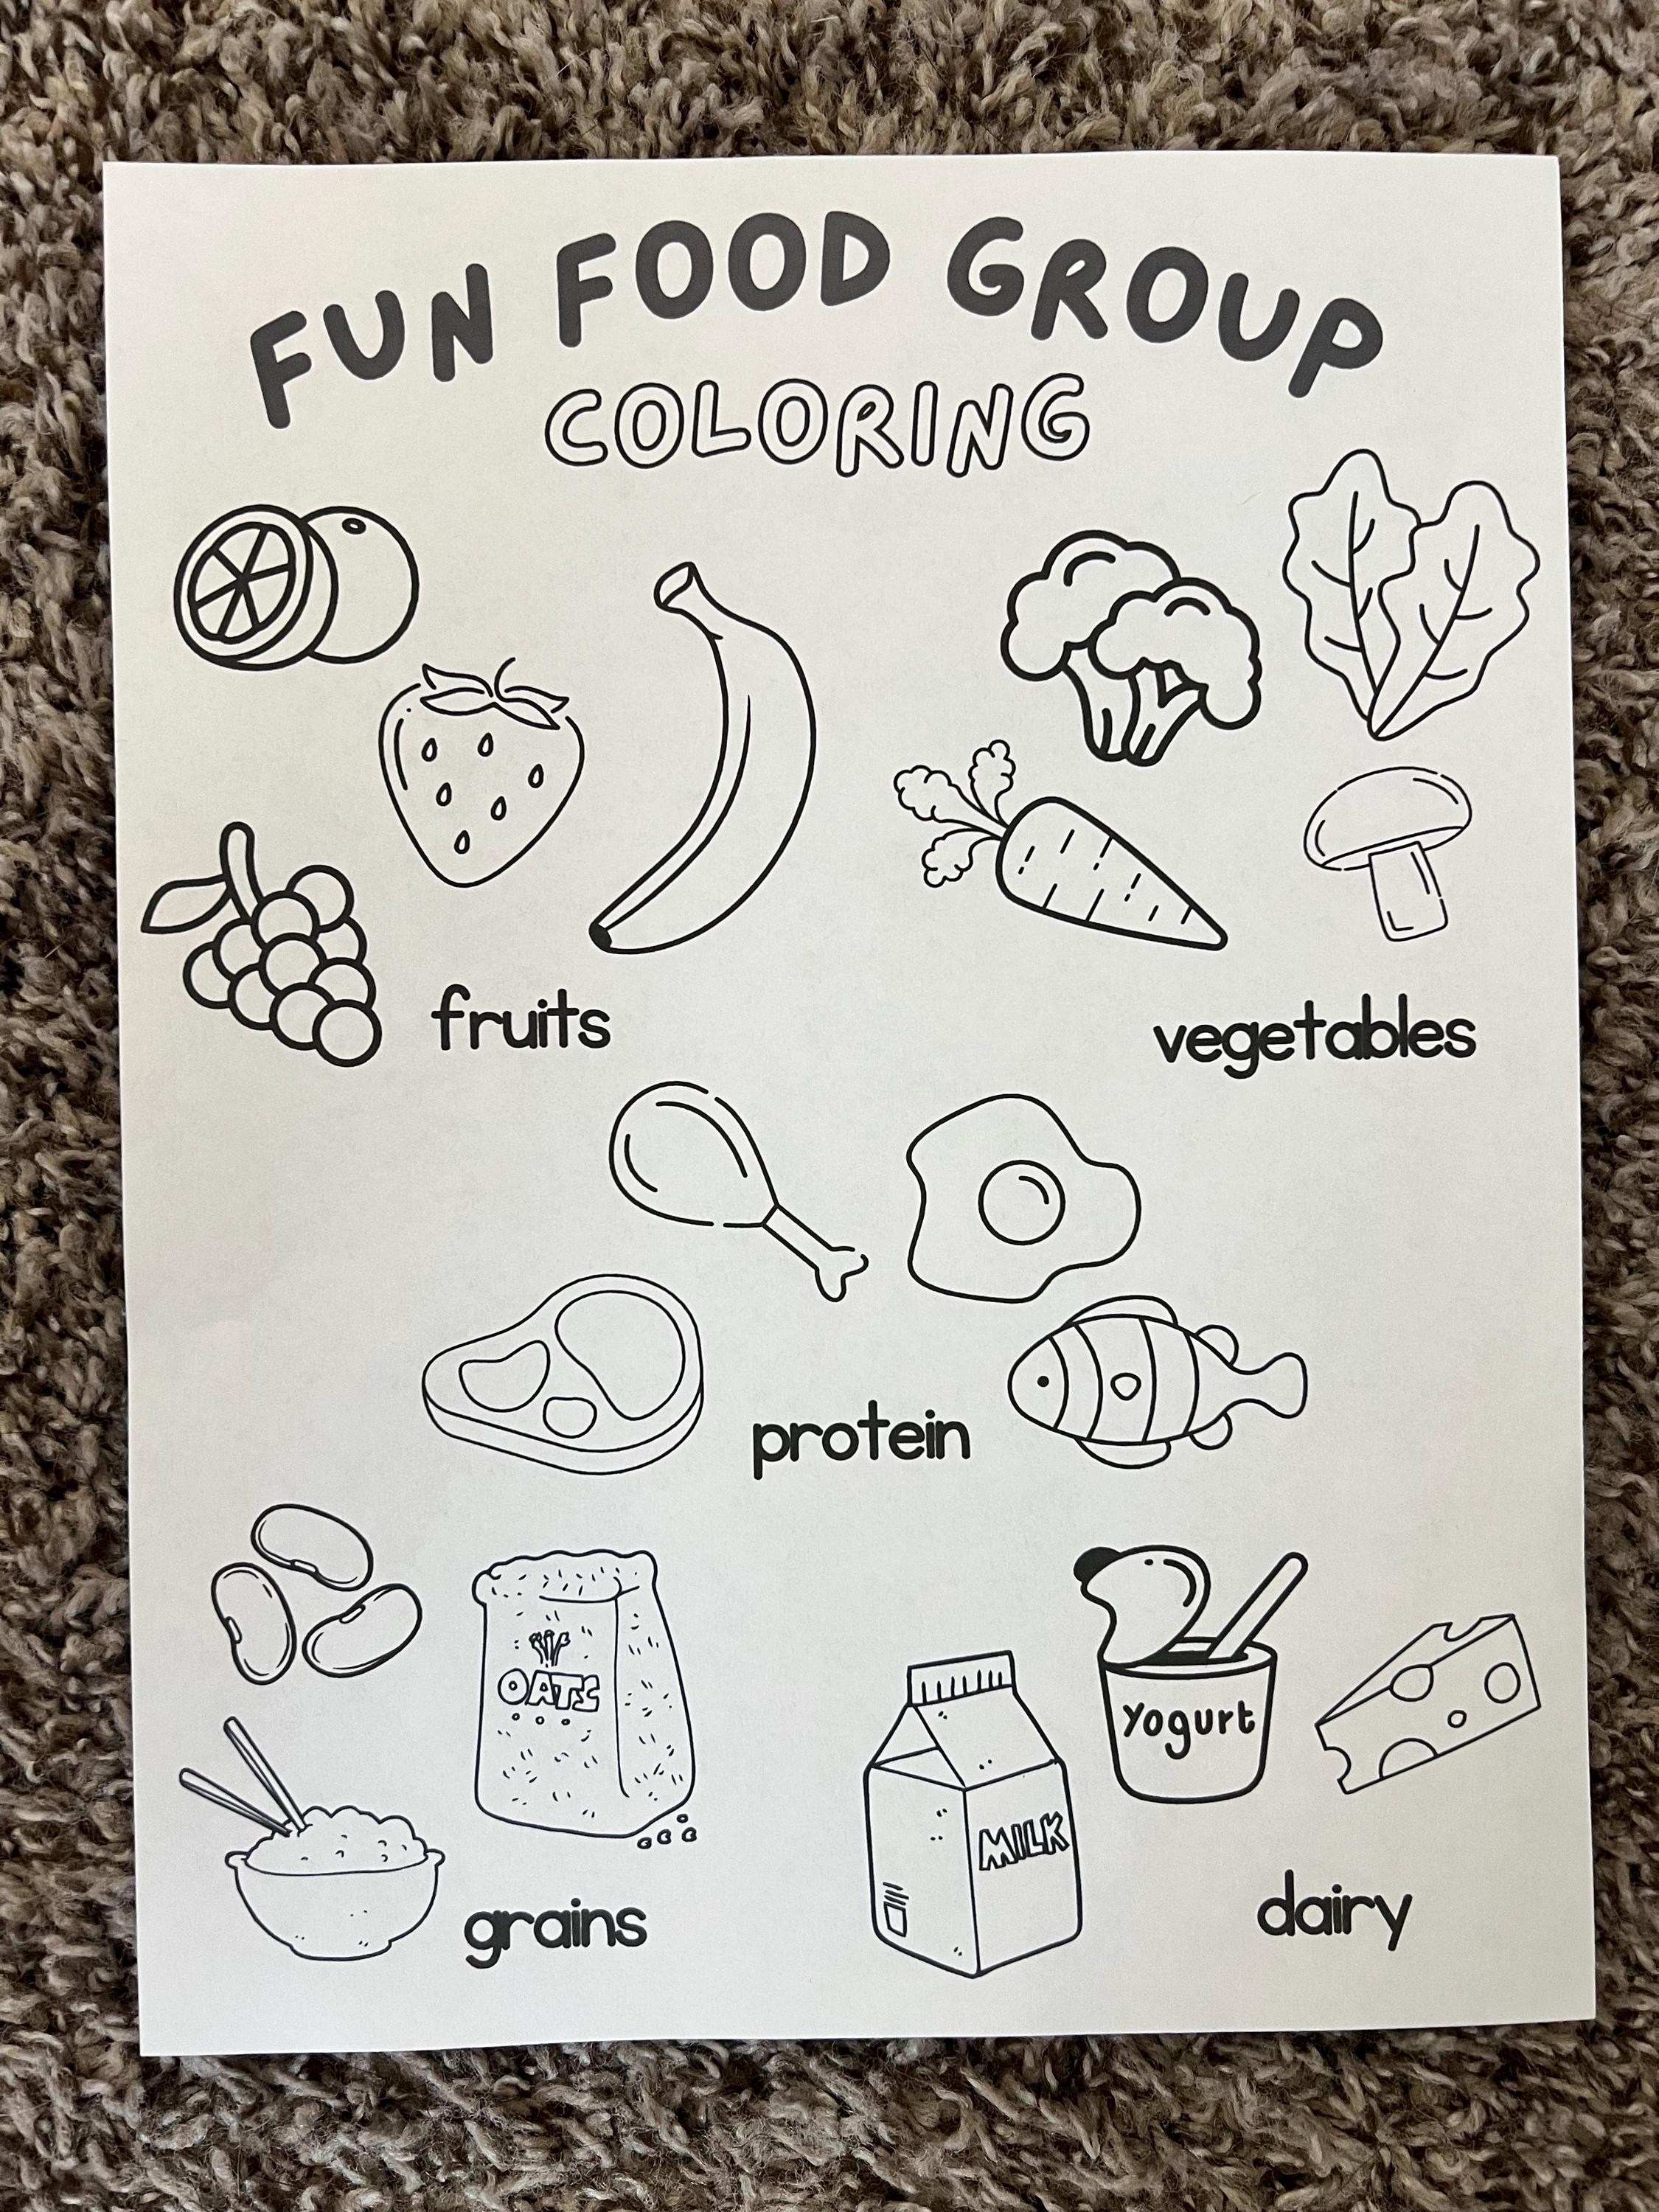 FUN FOOD GROUP
COLORING
fruits
vegetables
protein
OATS
Yogurt
MILK
grains
dairy